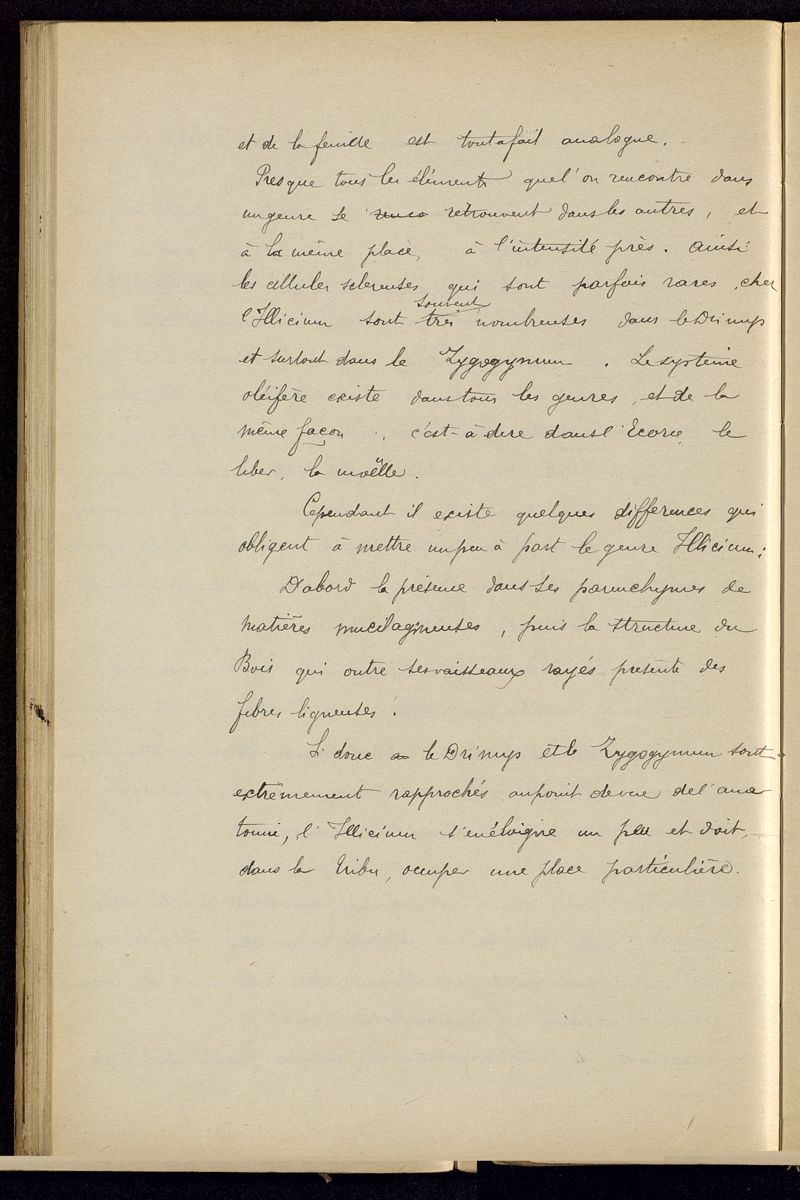 et de la feuille est toutafait analogue.
Presque tous les éléments quel'on rencontre dans
ungenre se renco retrouvent dans les autres, et
à la même place, à l'intensité près. Ainsi
les cellules scléreuses qui sont parfois rares chez
souvent
l'Illicium sont très nombreuses dans le Drimys
et surtout dans le Zygogynum. Le système
oléifère existe dans tous les genres, et de la
même façon, c'est-à-dire dans l'Ecorce, le
liber, la moëlle.
Cependant il existe quelques différences qui
obligent à mettre unpeu à part le genre Illicium:
D'abord la présence dans ses parenchymes de
matières mucilagineuses, puis la structure du
Bois qui outre ses vaisseaux rayés présente des
fibres ligneuses.
Si donc le Drimys et le Zygogynum sont
extrêmement rapprochés aupoint devue del'ana
tomie, l'Illicium s'enéloigne un peu et doit,
dans la tribu, occuper une place particulière.